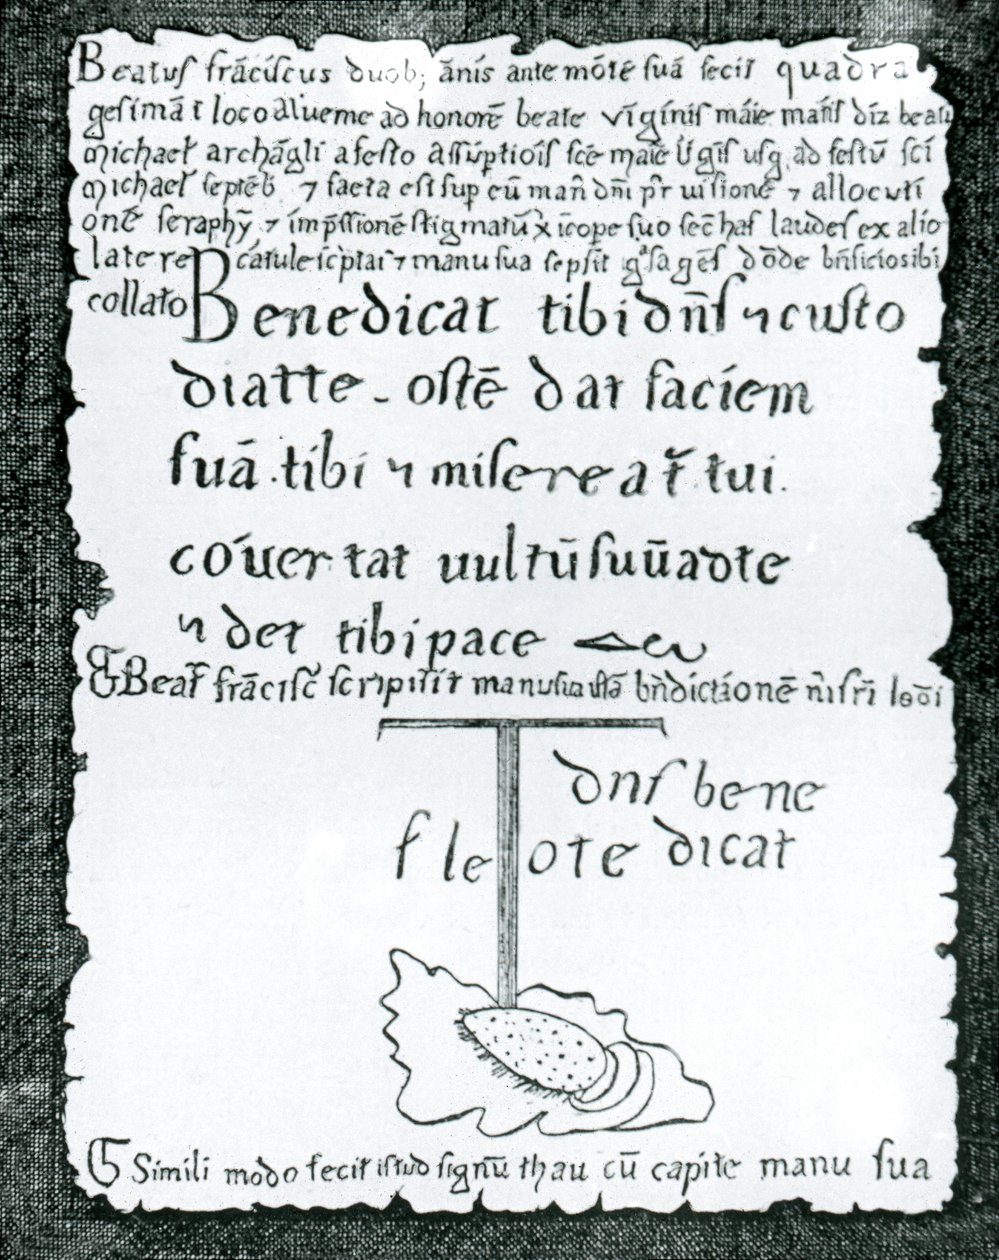 Beatuſ frāciſcus duob; ānis ante mōtē ſuā fecit quadra
geſimā ī loco alueıne ad honorē beate v̄iginiſ máie mat̄iſ dīz beati
michaeł archāgli a feſto aſſūptioīſ ſcē maīe ūgīſ uſq ad feſtū ſcī
michaeł ſeptēb̄ ⁊ facta eſt ſup eū man̄ dn̄i pr̄ uiſionē ⁊ allocuti
onē ſeraphȳ ⁊ imp̄ſſionē ſtigmatū x̄ i c̄orpe ſuo fec̄ haſ laudeſ ex alio
latere catule ſcptaſ ⁊ manu ſua ſcpſit gͣſ agēſ dōde bn̄ficio sibi
collato
Benedicat tibi dn̄ſ ⁊ cuſto
diat te - oſtēdat faciem
ſuā tibi ⁊ miſereat̄ tui.
cōuertat uultū ſuū ad te
⁊ det tibi pace
Beat̄ frāciſc̄ ſcripſit manu ſua iſtā bn̄dictionē m̄ fr̄i leōi
dnſ bene
f le o te dicat
Simili modo fecit iſtud ſignū thau cū capite manu ſua